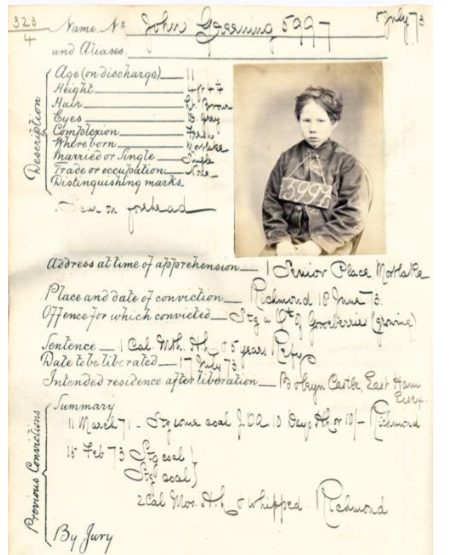 323
4
Name, No John Greening 5997 5 July 73
and Aliases.
Description
Age (on discharge) — 11
Height — 4 ft 4½
Hair — Lt. Brown
Eyes — D. Gray
Complexion — Fresh
Where born — Mortlake
Married or Single — Single
Trade or occupation — None
Distinguishing marks
Scar on forehead
5997
Address at time of apprehension — 1 Senior Place Mortlake
Place and date of conviction — Richmond 18 June 73.
Offence for which convicted — Stg a Qt of Gooseberries (growing)
Sentence — 1 Cal Mth. H.L. & 5 years Refy
Date to be liberated — 17 July 73.
Intended residence after liberation — Castle, East Ham
Essex.
Previous Convictions
Summary
11 March 71 — Stg some coal J.O.A 10 Days H.L or 10/– Richmond
15 Feb 73 Stg coal }
Stg coal }
2 Cal Mos. H.L. & whipped. Richmond
By Jury